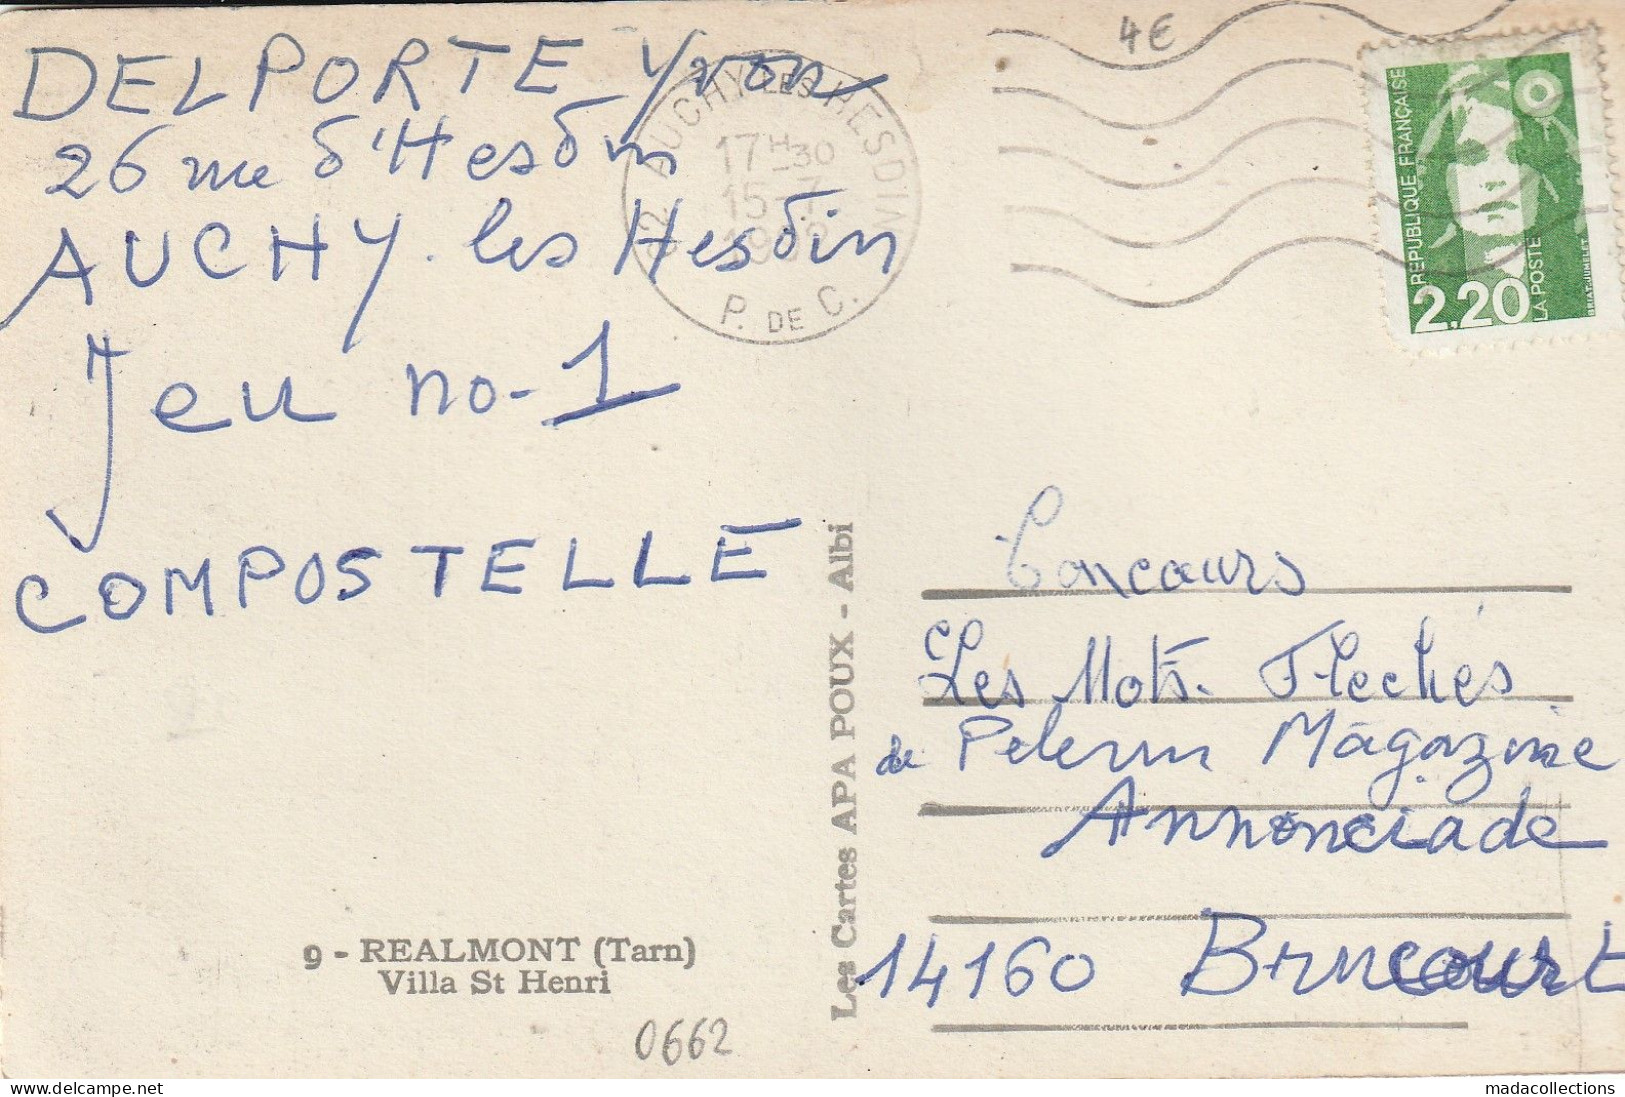 DELPORTE Yvon
26 rue d'Hesdin
AUCHY-les Hesdin
Jeu no-1
COMPOSTELLE
62 AUCHY LES HESDIN
17H30
15-7
P. DE C.
4€
REPUBLIQUE FRANÇAISE
2,20
LA POSTE
BRIAT-JUMELET
Les Cartes APA POUX - Albi
Concours
Les Mots Flechés
de Pelerin Magazine
Annonciade
14160 Brucourt
9 - REALMONT (Tarn)
Villa St Henri
0662
madacollections